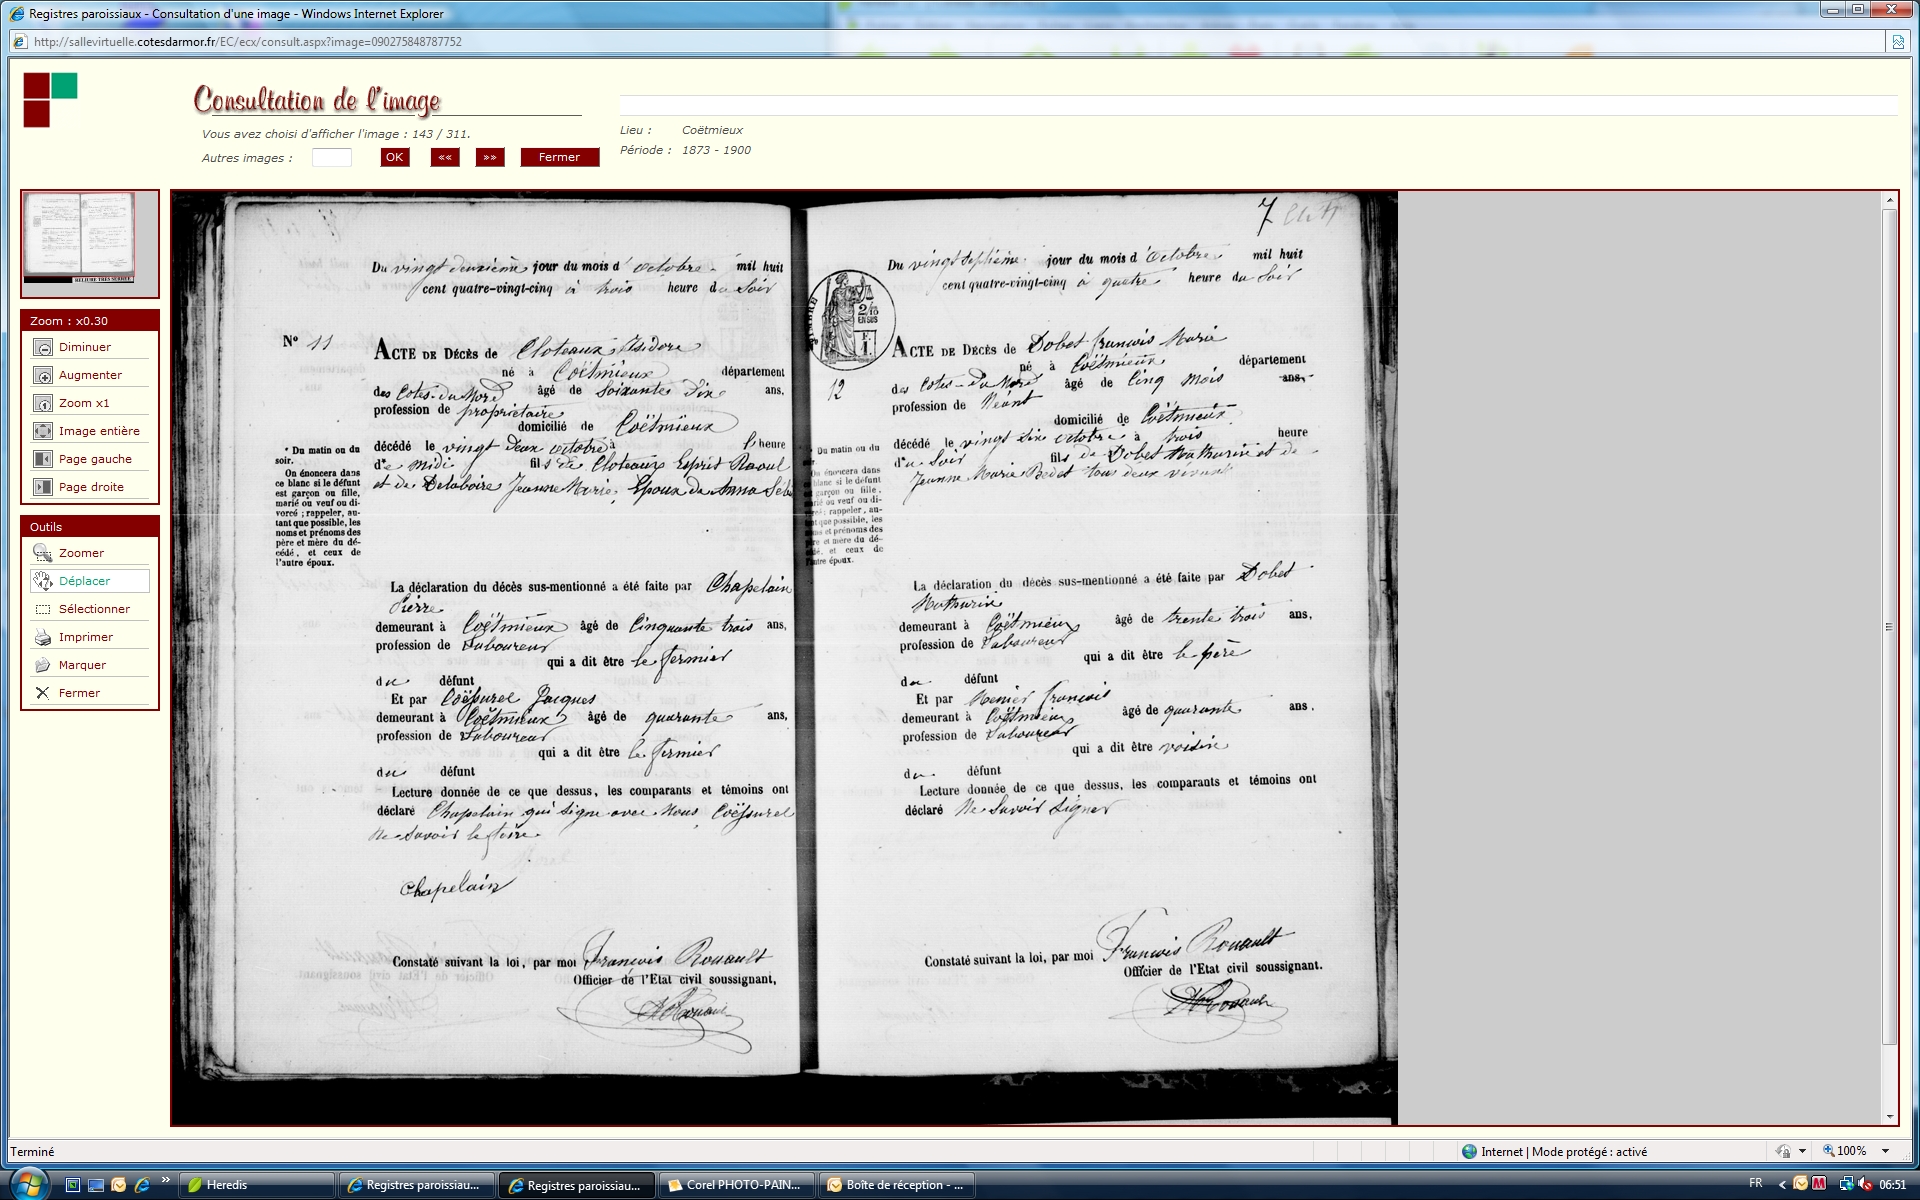 Registres paroissiaux - Consultation d'une image - Windows Internet Explorer
http://sallevirtuelle.cotesdarmor.fr/EC/ecx/consult.aspx?image=090275848787752
Consultation de l'image
Vous avez choisi d'afficher l'image : 143 / 311.
Autres images :
OK
««
»»
Fermer
Lieu : Coëtmieux
Période : 1873 - 1900
RELIURE TRES SERREE
Zoom : x0.30
Diminuer
Augmenter
Zoom x1
Image entière
Page gauche
Page droite
Outils
Zoomer
Déplacer
Sélectionner
Imprimer
Marquer
Fermer
Du vingt deuxième jour du mois d'octobre mil huit
cent quatre-vingt-cinq à trois heure du Soir
N° 11
ACTE DE DÉCÈS de Cloteaux Isidore
né à Coëtmieux département
des Cotes-du-Nord âgé de Soixante dix ans,
profession de propriétaire
domicilié de Coëtmieux
décédé le vingt deux octobre à l'heure
de midi fils de Cloteaux Esprit Raoul
et de Delaboire Jeanne Marie, Epoux de Anna
* Du matin ou du
soir.
On énoncera dans
ce blanc si le défunt
est garçon ou fille,
marié ou veuf ou di-
vorcé ; rappeler, au-
tant que possible, les
noms et prénoms des
père et mère du dé-
cédé, et ceux de
l'autre époux.
La déclaration du décès sus-mentionné a été faite par Chapelain
Pierre
demeurant à Coëtmieux âgé de Cinquante trois ans,
profession de Laboureur
qui a dit être le fermier
du défunt
Et par Coëssurel Jacques
demeurant à Coëtmieux âgé de quarante ans,
profession de Laboureur
qui a dit être le fermier
du défunt
Lecture donnée de ce que dessus, les comparants et témoins ont
déclaré Chapelain qui signe avec Nous Coëssurel
ne Savoir le faire
Chapelain
Constaté suivant la loi, par moi François Rouault
Officier de l'Etat civil soussignant,
7
Du vingt septième jour du mois d'Octobre mil huit
cent quatre-vingt-cinq à quatre heure du Soir
2/10
EN SUS
12
ACTE DE DÉCÈS de Dobet François Marie
né à Coëtmieux département
des Cotes-du-Nord âgé de Cinq mois ans,
profession de Néant
domicilié de Coëtmieux
décédé le vingt six octobre à trois heure
du Soir fils de Dobet Mathurin et de
Jeanne Marie Bedet tous deux vivant
* Du matin ou du
soir.
On énoncera dans
ce blanc si le défunt
est garçon ou fille,
marié ou veuf ou di-
vorcé ; rappeler, au-
tant que possible, les
noms et prénoms des
père et mère du dé-
cédé, et ceux de
l'autre époux.
La déclaration du décès sus-mentionné a été faite par Dobet
Mathurin
demeurant à Coëtmieux âgé de trente trois ans,
profession de Laboureur
qui a dit être le père
du défunt
Et par Menier François
demeurant à Coëtmieux âgé de quarante ans.
profession de Laboureur
qui a dit être voisin
du défunt
Lecture donnée de ce que dessus, les comparants et témoins ont
déclaré Ne Savoir Signer
Constaté suivant la loi, par moi François Rouault
Officier de l'Etat civil soussignant.
Terminé
Internet | Mode protégé : activé
100%
Heredis
Registres paroissiau...
Registres paroissiau...
Corel PHOTO-PAIN...
Boîte de réception - ...
FR
06:51